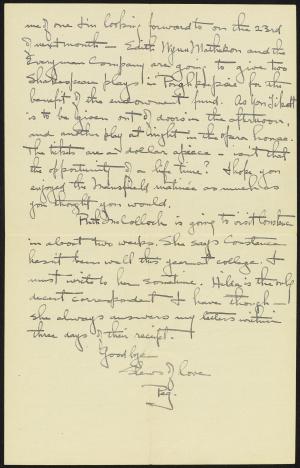 me of one I'm looking forward to on the 23rd
of next month – Edith Wynne Matheson and the
Everyman Company are going to give two
Shakespeare plays in Poughkeepsie for the
benefit of the endowment fund. As You Like It
is to be given out of doors in the afternoon,
and another play at night – in the opera house.
The tickets are a dollar apiece – isn't that
the opportunity of a life time? I hope you
enjoyed the Mansfield matinée as much as
you thought you would.
Ruth McColloch is going to visit Constance
in about two weeks. She says Constance
hasn't been well this year at college. I
must write to her sometime. Hilda is the only
decent correspondent I have though –
she always answers my letters within
three days of their receipt.
Goodbye
Slews of love
Peg.